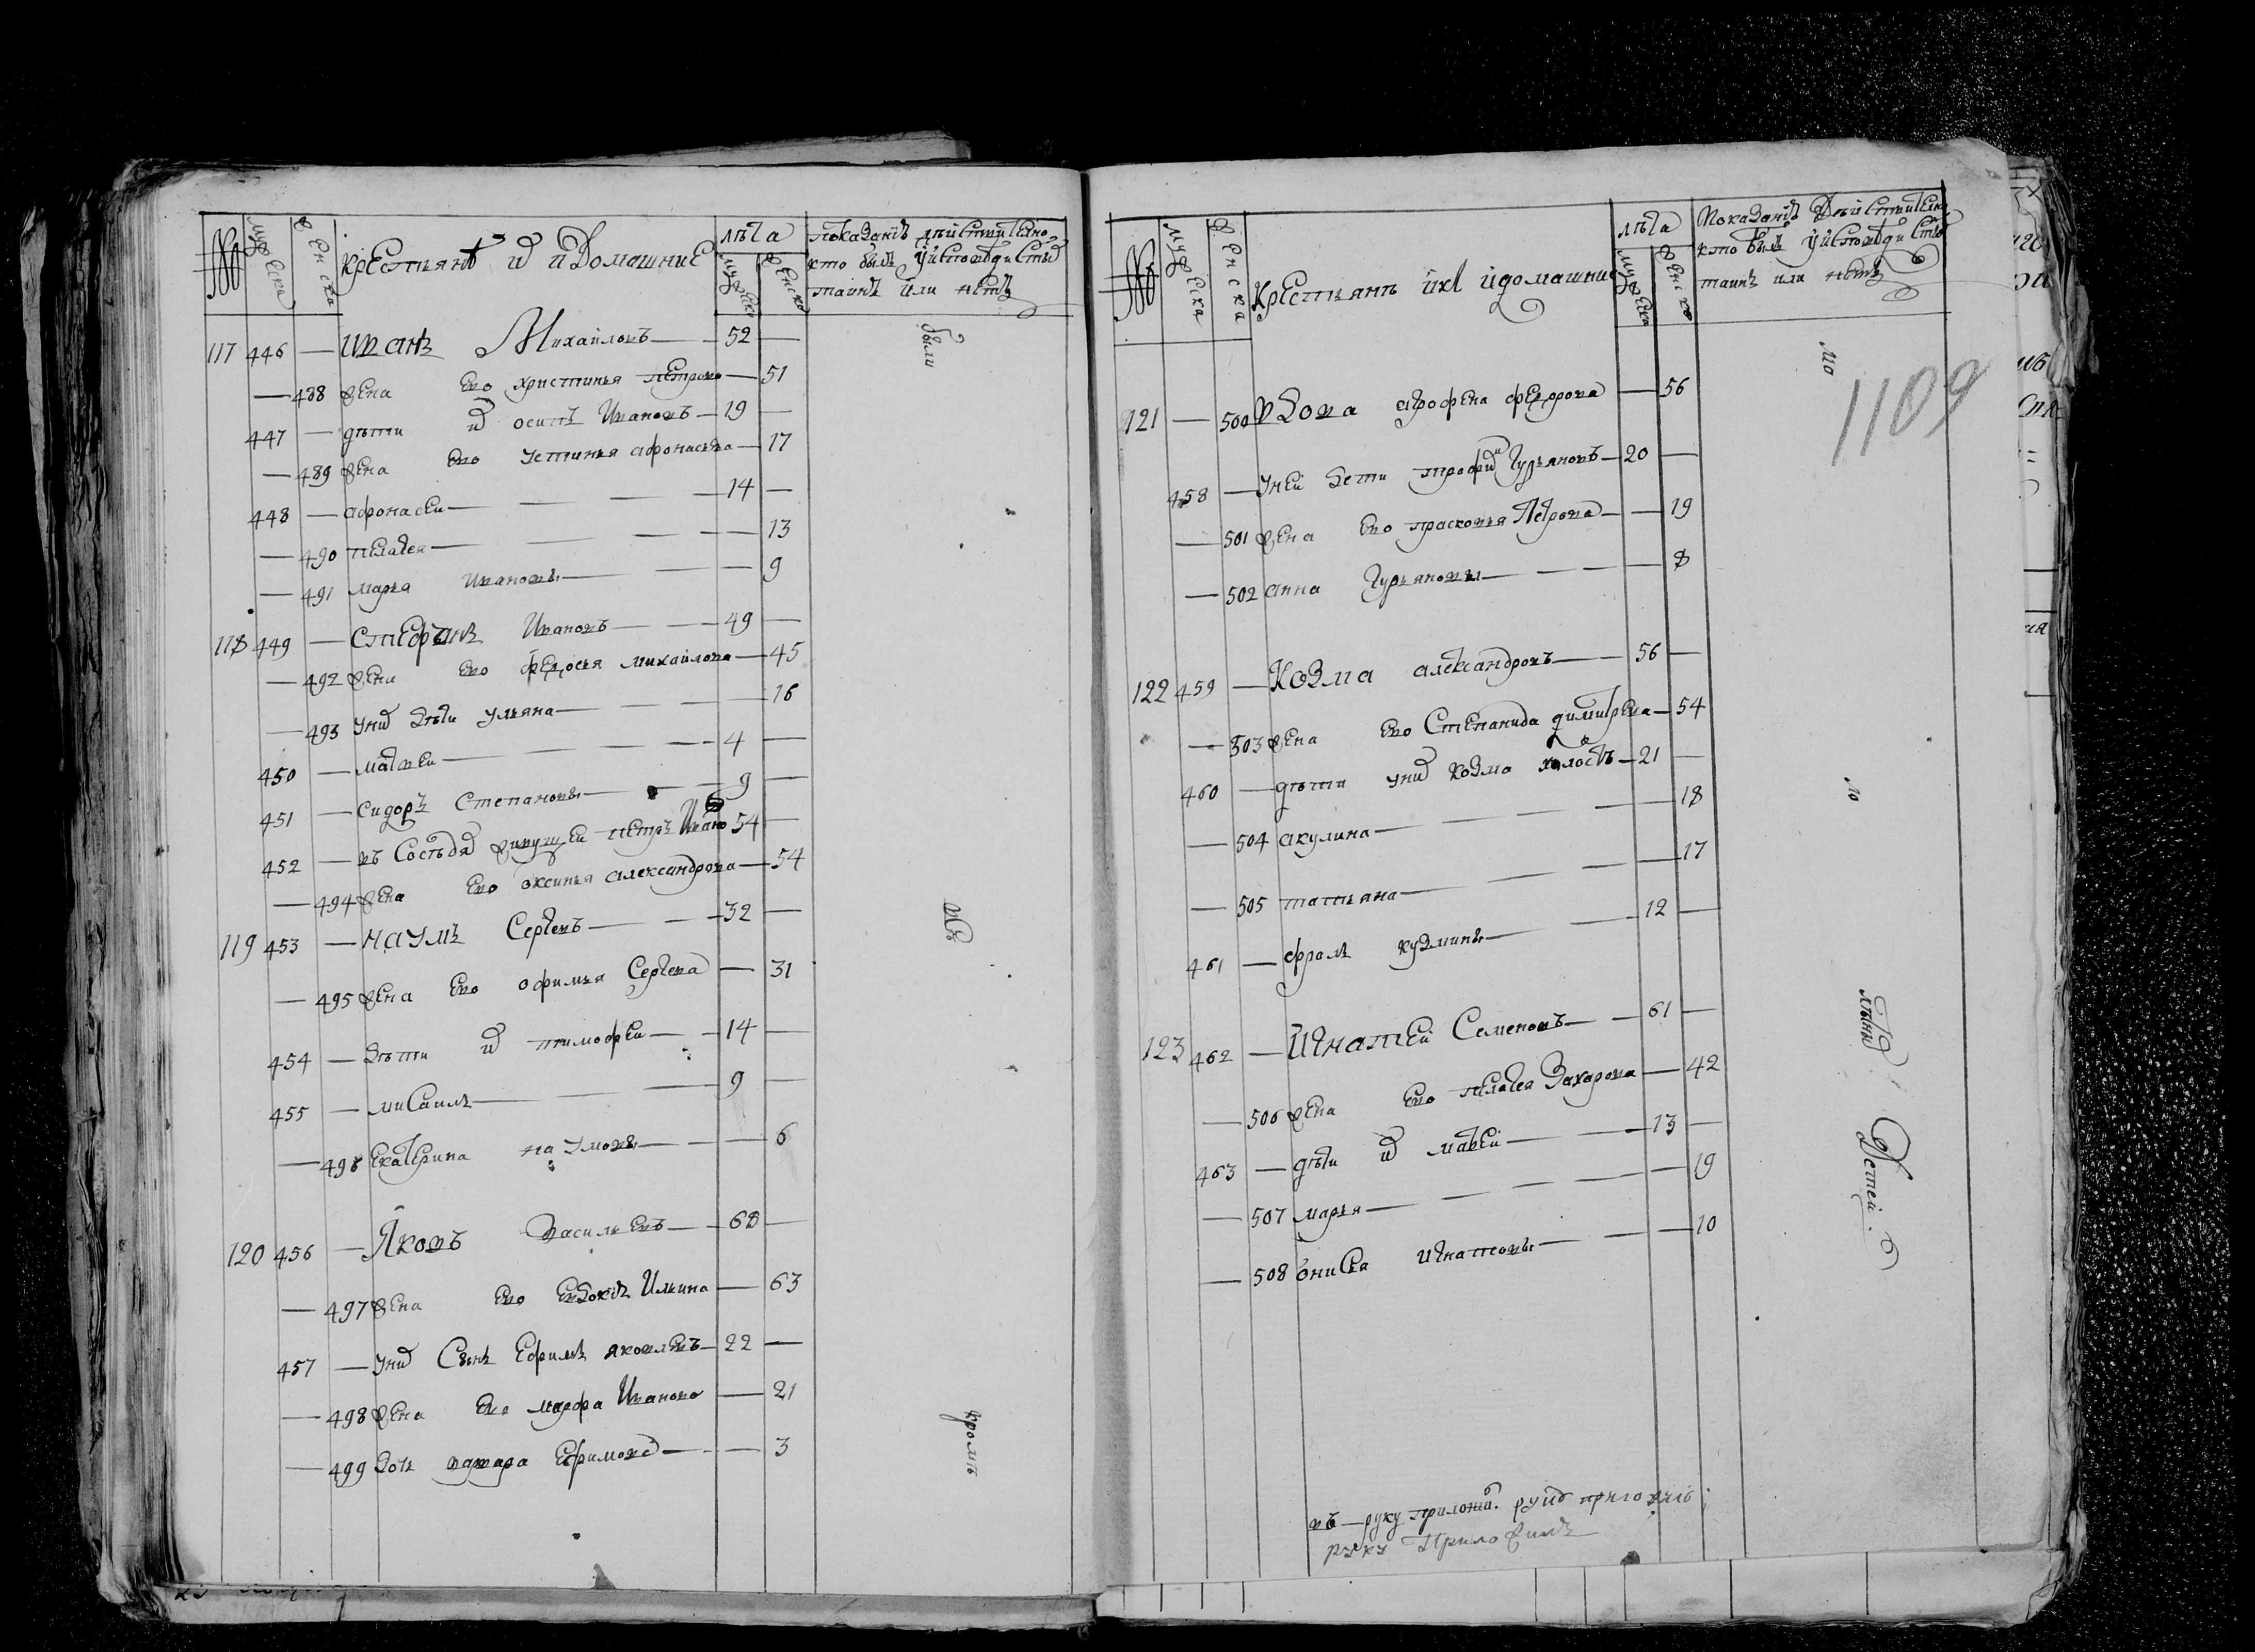 № мужеска женска Крестьянѣ их и домашние лѣта мужеска женска показанїѣ дѣйствително кто былъ у исповѣди и святых таинъ или нетъ
117 446 — Иванъ Михайловъ — 52 —
— 488 жена ево христинья петрова — 51
447 — дѣти их осипъ Ивановъ — 19 —
— 489 жена ево устинья афонасьева — 17
448 — афонасеи — 14 —
— 490 пелагея — 13
— 491 марья Ивановы — 9
118 449 — Стефанъ Ивановъ — 49 —
— 492 жена ево федосья михайлова — 45
— 493 у них дѣти ульяна — 16
450 — матвеи — 4 —
451 — сидоръ степановы — 9 —
452 — въ соседях живущеи петръ Ивано 54 —
— 494 жена ево оксинья александрова — 54
119 453 — наумъ Сергеевъ — 32 —
— 495 жена ево офимья Сергеева — 31
454 — дѣти их тимофеи — 14 —
455 — мисаилъ — 9 —
— 496 екатерина наумовы — 6
120 456 — Яковъ васильевъ — 68 —
— 497 жена ево евдокїѣ Ильина — 63
457 — у них сынъ Ефимъ яковлевъ — 22 —
— 498 жена ево марфа Иванова — 21
— 499 дочь варвара Ефимова — 3
были
всѣ
кромѣ
№ мужеска женска Крестьянъ ихъ и домашние лѣта мужеска женска показанїѣ дѣйствително кто былъ у исповѣди и святых таинъ или нетъ
1109
121 — 500 вдова агрофена федорова — 56
458 — у неи дети трофим Гурьяновъ — 20 —
— 501 жена ево прасковья Петрова — 19
— 502 анна Гурьяновы — 8
122 459 — Козма александровъ — 56 —
— 503 жена ево Степанида димитрева — 54
460 — дѣти у них козма холостъ — 21 —
— 504 акулина — 18
— 505 татьяна — 17
461 — фролъ кузмины — 12 —
123 462 — Игнатей Семеновъ — 61 —
— 506 жена ево пелагея Захарова — 42
463 — дѣти их матвей — 13 —
— 507 марья — 19
— 508 ониска игнатовы — 10
мо
ло
лѣтних
Детей.
въ — руку прилож.
руку Приложилъ